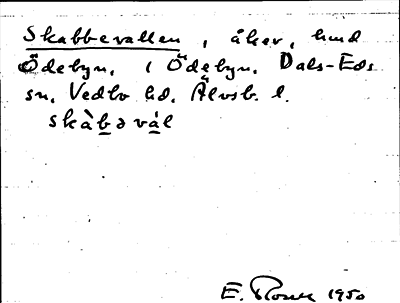 Skabbevallen, åker, hmd
Ödebyn, i Ödebyn, Dals-Eds
sn, Vedbo hd, Älvsb. l.
skàb̲əvá̲l
E. 1950